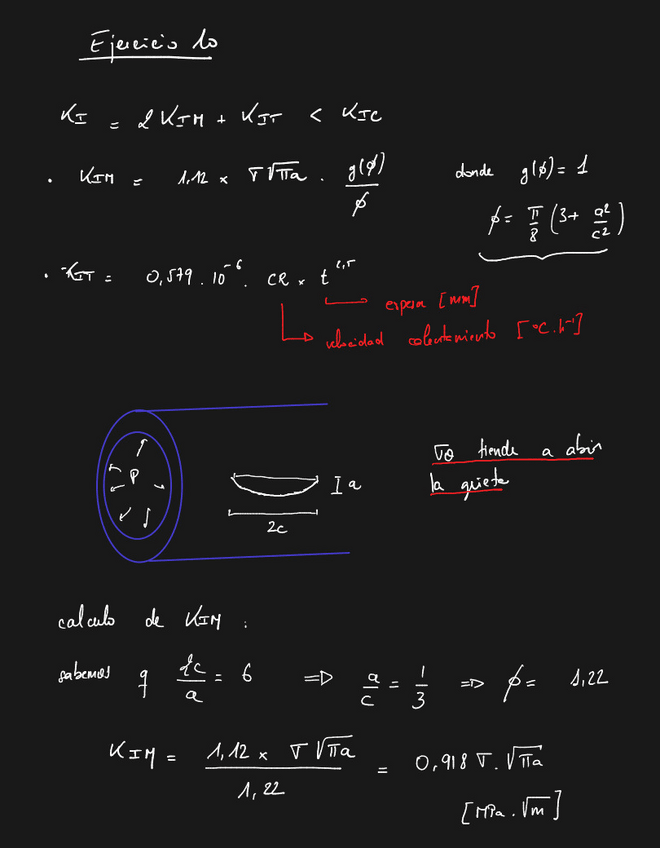 Ejercicio 10
K_I = 2 K_IM + K_IT < K_IC
· K_IM = 1,12 × σ√πa · g(ϕ)/ϕ donde g(ϕ) = 1
ϕ = π/8 (3 + a²/c²)
· K_IT = 0,579 . 10^-6 . CR × t^2,5
espesor [mm]
velocidad calentamiento [°C.h^-1]
P
I a
2c
σθ tiende a abrir
la grieta
calculo de K_IM :
sabemos q 2c/a = 6 => a/c = 1/3 => ϕ = 1,22
K_IM = 1,12 × σ√πa / 1,22 = 0,918 σ . √πa
[MPa . √m]